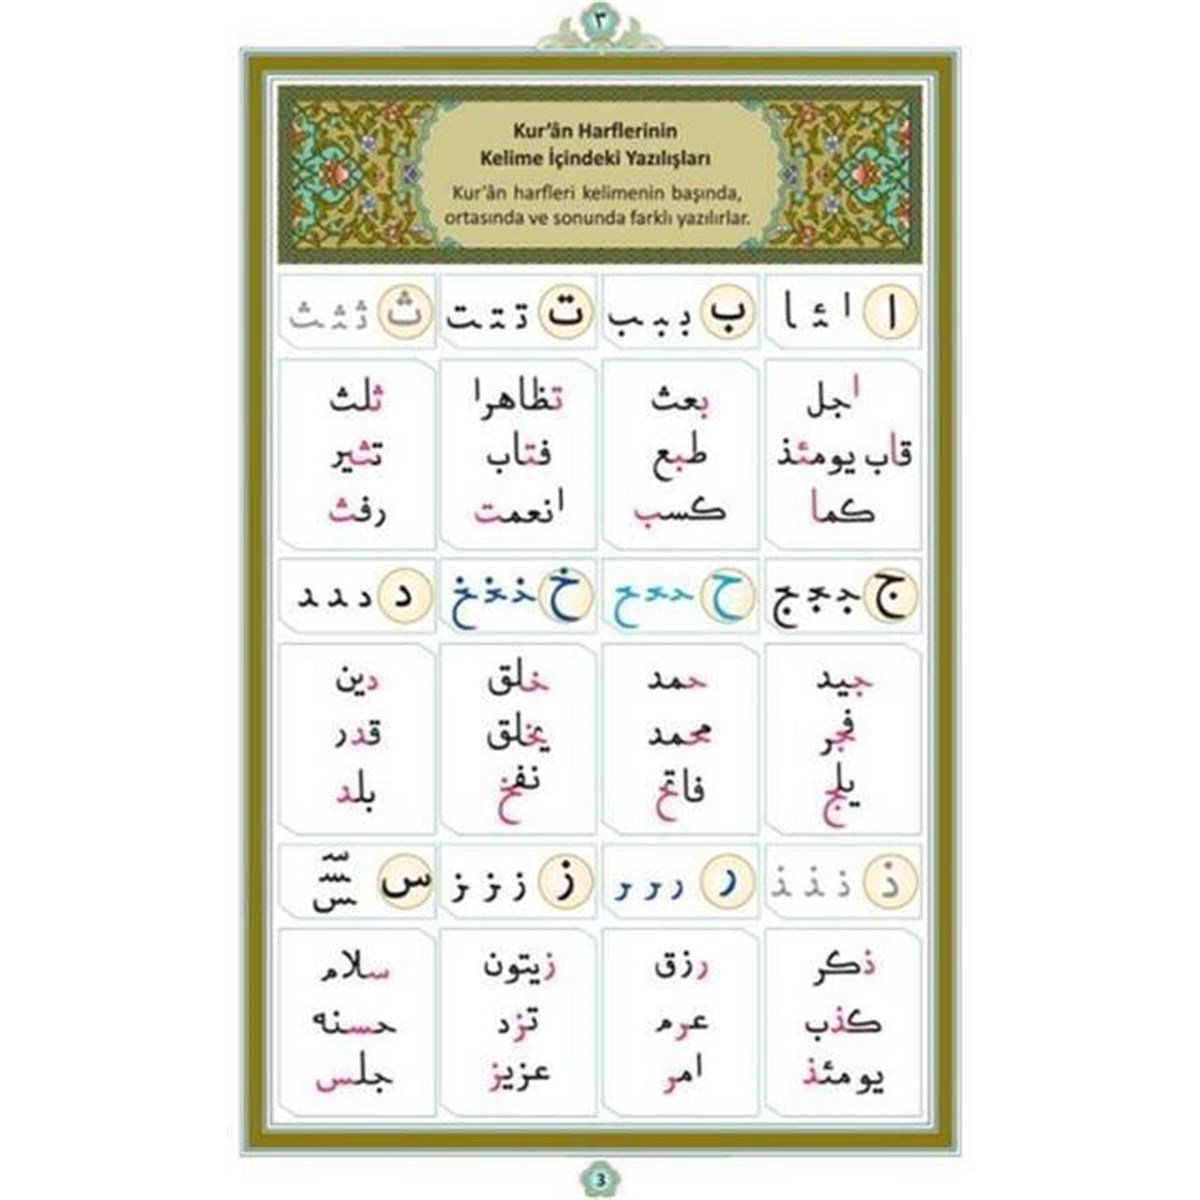 ٣
Kur'ân Harflerinin
Kelime İçindeki Yazılışları
Kur'ân harfleri kelimenin başında,
ortasında ve sonunda farklı yazılırlar.
ا ا ئ ا
ب بـ ـبـ ـب
ت تـ ـتـ ـت
ث ثـ ـثـ ـث
اجل
قاب يومئذ
كما
بعث
طبع
كسب
تظاهرا
فتاب
انعمت
ثلث
تثير
رفث
ج جـ ـجـ ـج
ح حـ ـحـ ـح
خ خـ ـخـ ـخ
د د ـد ـد
جيد
فجر
يلج
حمد
محمد
فاتح
خلق
يخلق
نفخ
دين
قدر
بلد
ذ ذ ـذ ـذ
ر ر ـر ـر
ز ز ـز ـز
س سـ ـسـ ـس
ذكر
كذب
يومئذ
رزق
عرم
امر
زيتون
تزد
عزيز
سلام
حسنه
جلس
3